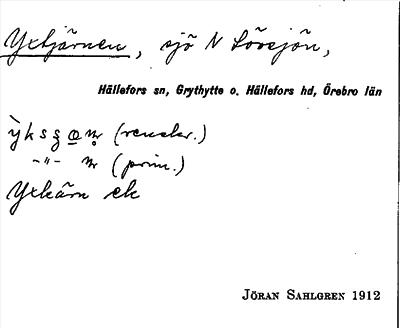 Yxtjärnen, sjö N Lövsjön,
Hällefors sn, Grythytte o. Hällefors hd, Örebro län
(renskr.)
-"- (prim.)
Yxkärn ek
JÖRAN SAHLGREN 1912